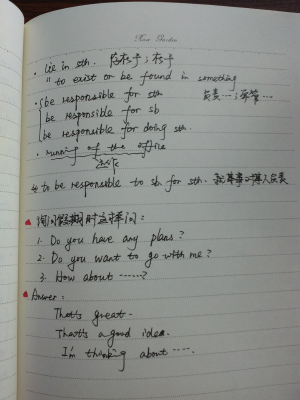 • lie in sth. 存在于；在于
" to exist or be found in something
• be responsible for sth 负责…；掌管…
be responsible for sb
be responsible for doing sth.
• running of the office
运作
to be responsible to sb. for sth.
询问假期时这样问：
1. Do you have any plans?
2. Do you want to go with me?
3. How about ……?
Answer:
That's great.
That's a good idea.
I'm thinking about ….